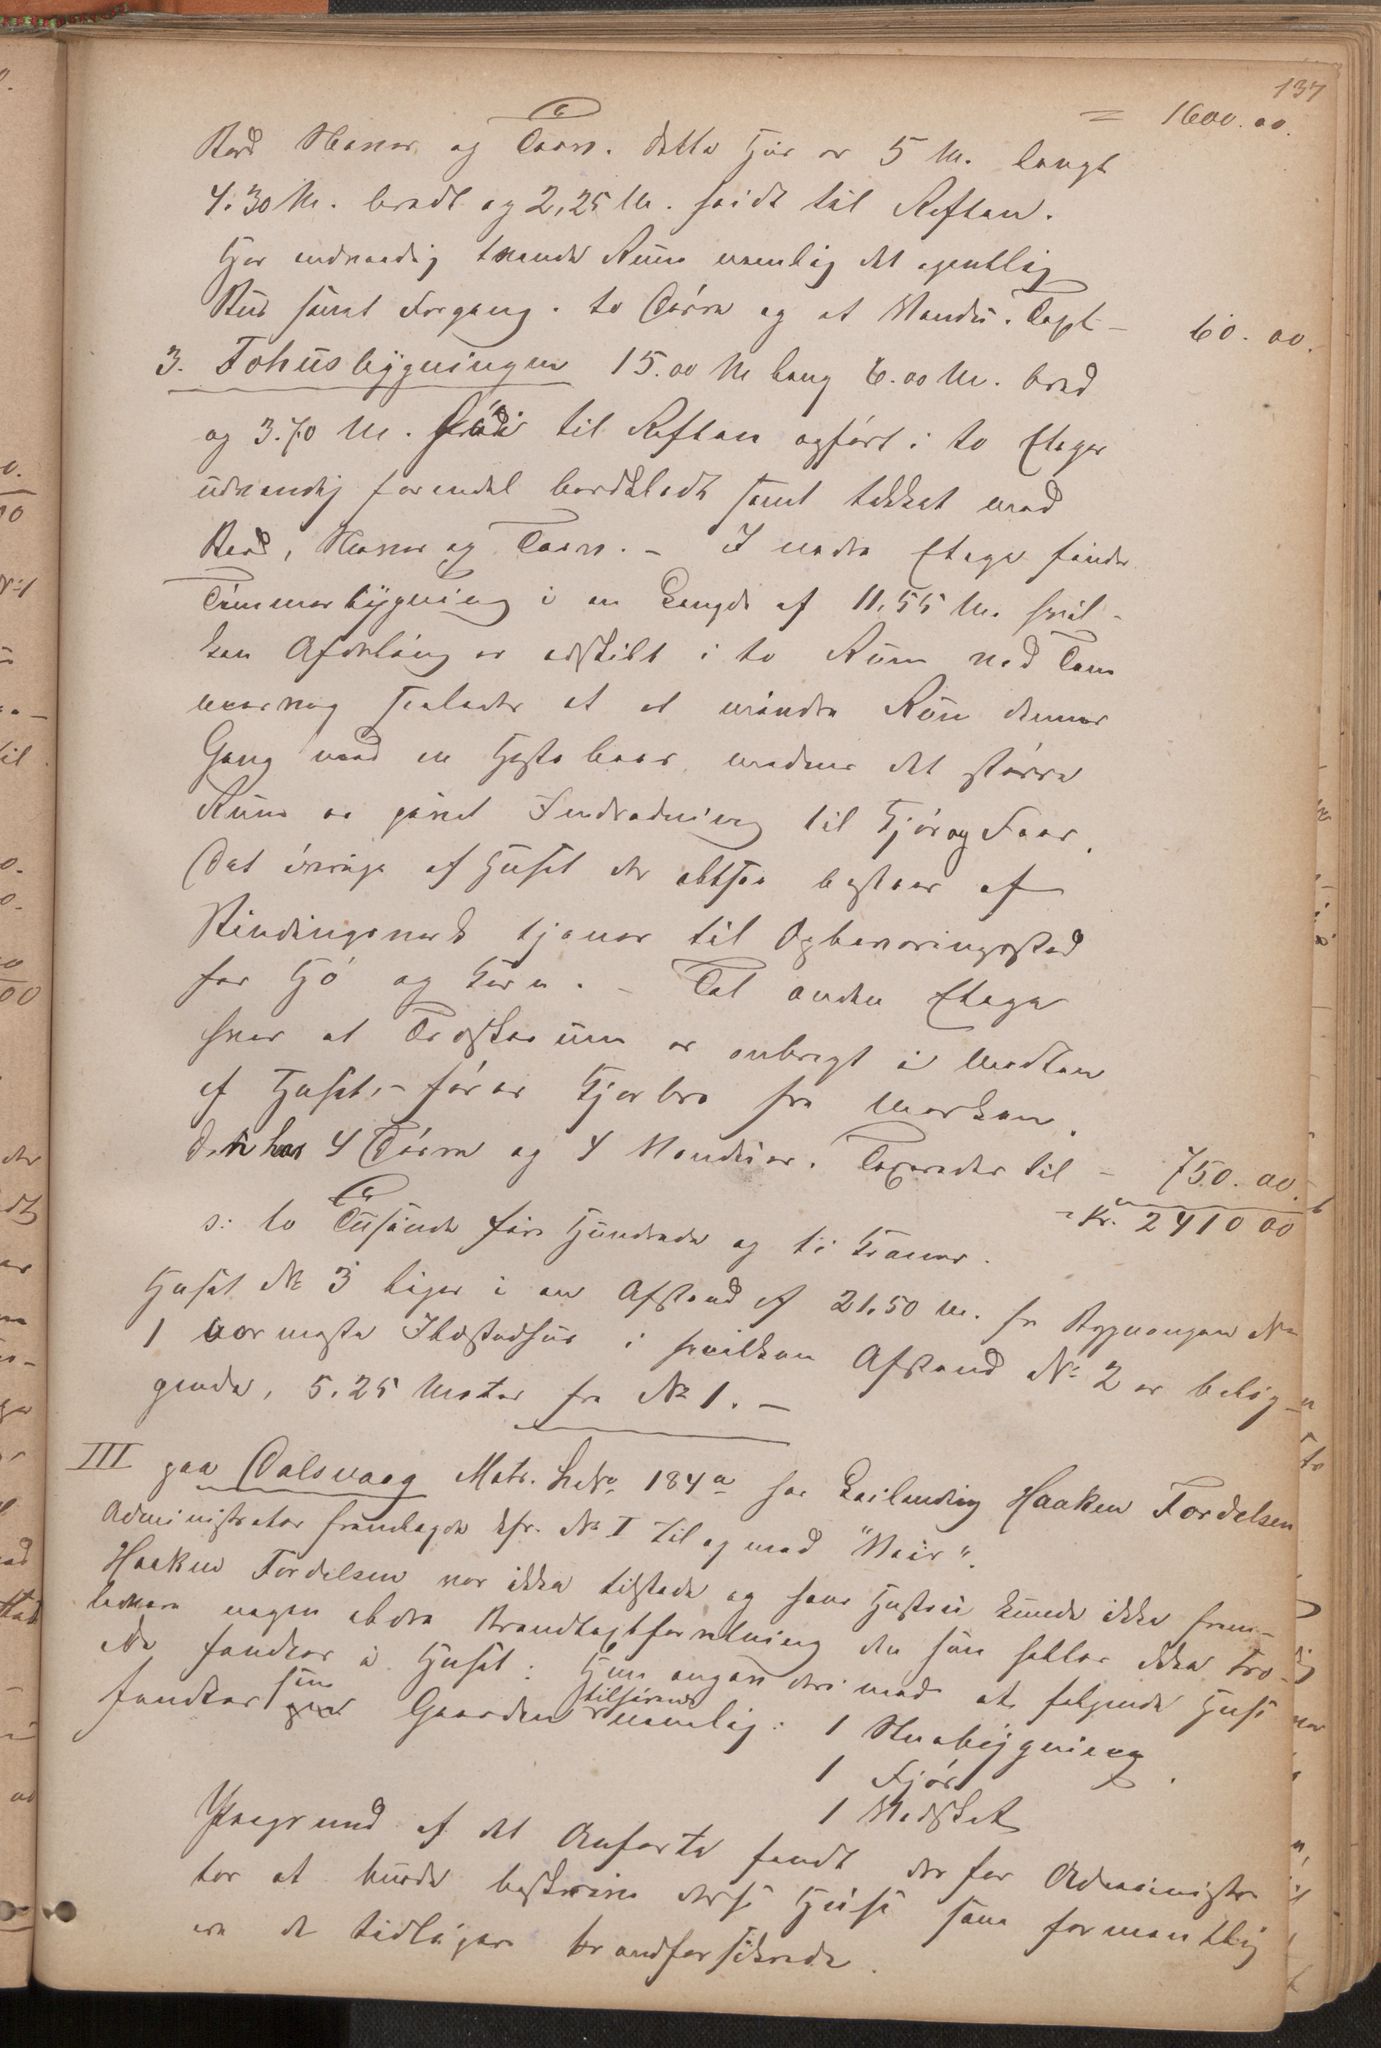 137
= 1600.00.
Bord Næver og Torv. dette Huus er 5 M. langt
4.30 M. bredt og 2,25 M. høidt til Røften.
Har indvendig tvende Rum nemlig det egentlig
Bur samt Forgang. to Døre og et Vindu. Taxt - 60.00.
3. Løhusbygningen 15.00 M lang 6.00 M. bred
og 3.70 M. høi til Røften opført i to Etager
udvendig forendel bordklædt samt tækket med
Bord, Næver og Torv. - I nedre Etage findes
Tømmerbygning i en Længde af 11,55 M. hvil-
ken Afdeling er adskilt i to Rum ved Tøm
mervæg saaledes at et mindre Rum danner
Gang med en Hestebaas medens det større
Rum er givet Indredning til Kjør og Faar.
Det øvrige af Huset der altsaa bestaar af
Bindingsverk tjener til Opbevaringssted
for Hø og Korn. - Til anden Etage
hvor et Træskerum er anbragt i Midten
af Huset, - fører Kjørbro fra Marken.
den har 4 Døre og 4 Vinduer. Taxeredes til - 750.00.
= Kr. 2410 00
s: to Tusinde fire Hundrede og ti Kroner.
Huset № 3 ligger i en Afstand af 21.50 M. fra Bygningen №
1 nærmeste Ildstedhus i hvilken Afstand № 2 er belig-
gende, 5,25 Meter fra № 1. -
III paa Dalsvaag Matr. L№ 184a hos Leilending Haaken Tordelsen
Administrator fremlagde kfr. № I til og med "Veir".
Haaken Tordelsen var ikke tilstede og hans Hustru kunde ikke frem-
lævere nogen ældre Brandtaxtforretning da hun heller ikke tro-
ede fandtes i Huset: Hun angav derimod at følgende Huse
fandtes som Gaarden tilhørende nemlig: 1 Stuebygning
1 Fjøs.
1 Vedskot
Paagrund af det Anførte fandt derfor Administra
tor at burde beskrive disse Huse som formentlig
ere de tidligere brandforsikrede.